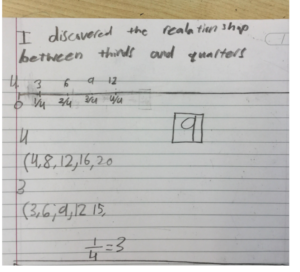 I discovered the realationshop
between thirds and quarters
3 6 9 12
0 1/4 2/4 3/4 4/4
9
4
(4,8,12,16,20
3
(3,6,9,12 15,
1/4 = 3